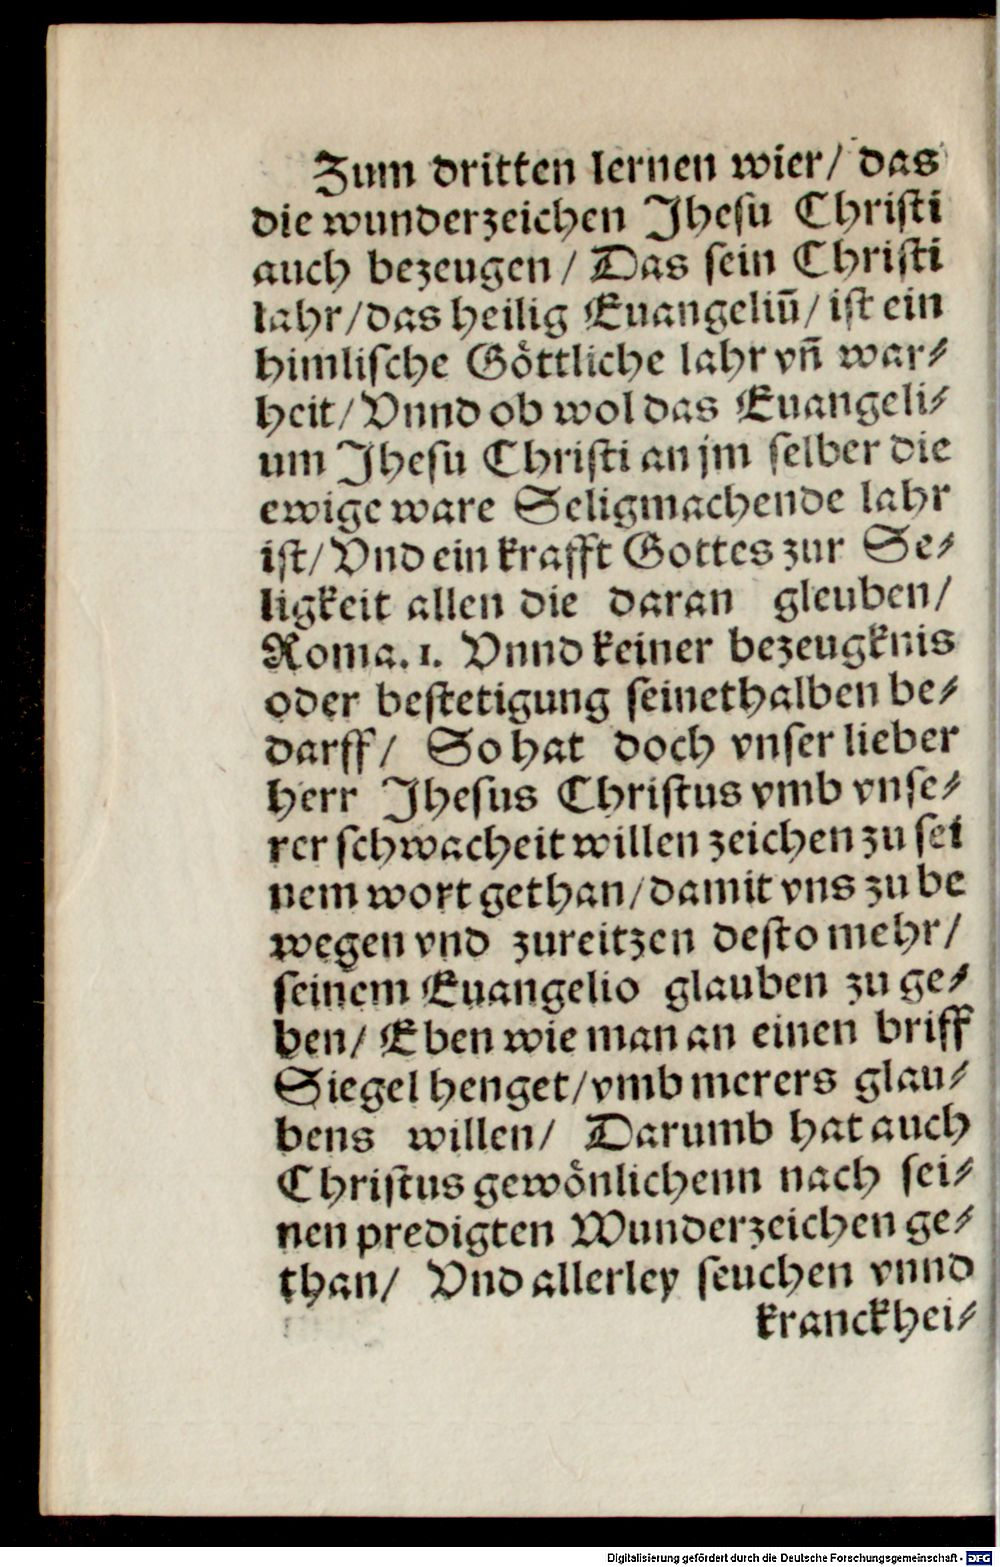 Zum dritten lernen wier/ das
die wunderzeichen Jhesu Christi
auch bezeugen / Das sein Christi
lahr/das heilig Euangeliū/ ist ein
himlische Göttliche lahr vn̄ war⸗
heit/ Vnnd ob wol das Euangeli⸗
um Jhesu Christi an jm selber die
ewige ware Seligmachende lahr
ist/ Vnd ein krafft Gottes zur Se⸗
ligkeit allen die daran gleuben/
Roma. 1. Vnnd keiner bezeugknis
oder bestetigung seinethalben be⸗
darff/ So hat doch vnser lieber
herr Jhesus Christus vmb vnse⸗
rer schwacheit willen zeichen zu sei
nem wort gethan/damit vns zu be
wegen vnd zureitzen desto mehr/
seinem Euangelio glauben zu ge⸗
ben/ Eben wie man an einen briff
Siegel henget/vmb merers glau⸗
bens willen/ Darumb hat auch
Christus gewönlichenn nach sei⸗
nen predigten Wunderzeichen ge⸗
than/ Vnd allerley seuchen vnnd
kranckhei⸗
Digitalisierung gefördert durch die Deutsche Forschungsgemeinschaft - DFG